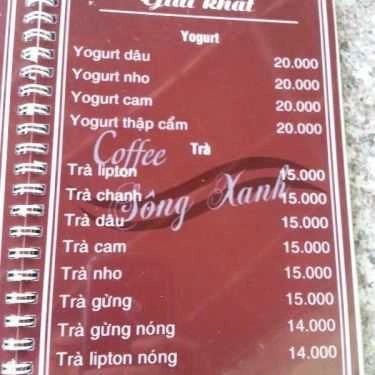 Giải khát
Yogurt
Yogurt dâu 20.000
Yogurt nho 20.000
Yogurt cam 20.000
Yogurt thập cẩm 20.000
Coffee
Trà
Trà lipton 15.000
Trà chanh 15.000
Sông Xanh
Trà dâu 15.000
Trà cam 15.000
Trà nho 15.000
Trà gừng 15.000
Trà gừng nóng 14.000
Trà lipton nóng 14.000